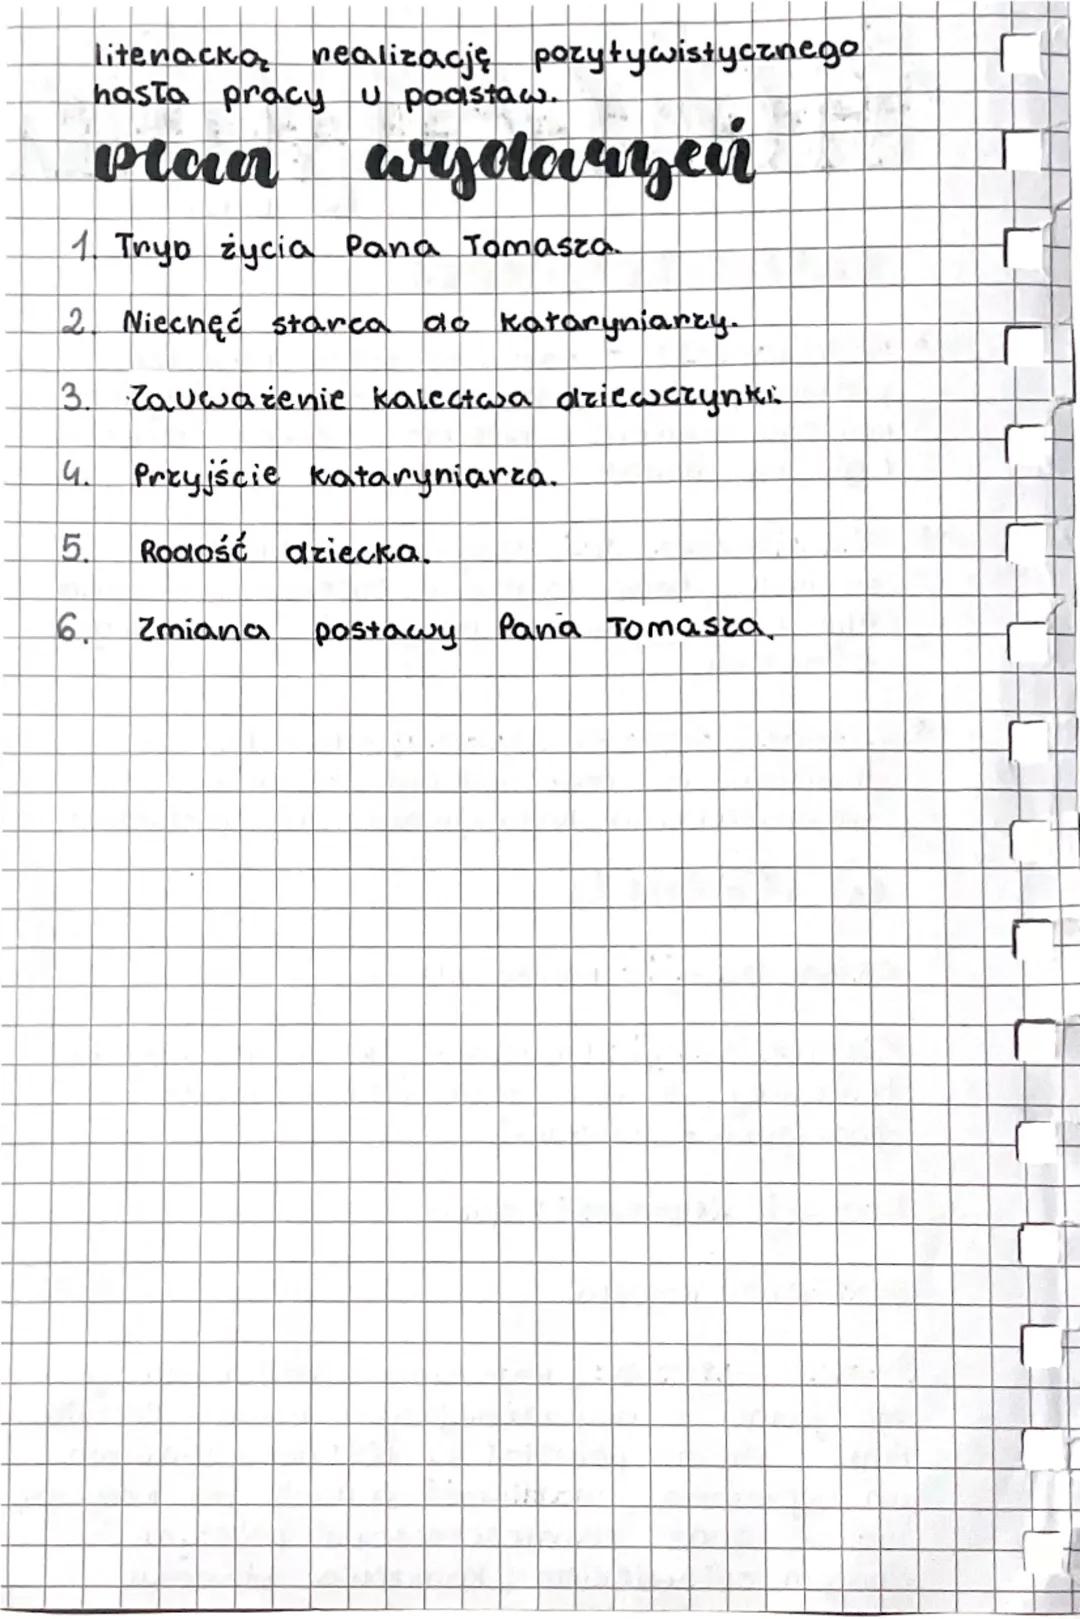 literacką realizację pozytywistycznego
hasła pracy u podstaw.
plan wydarzeń
1. Tryb życia Pana Tomasza.
2. Niechęć starca do kataryniarzy.
3. Zauważenie kalectwa dziewczynki.
4. Przyjście kataryniarza.
5. Radość dziecka.
6. Zmiana postawy Pana Tomasza.